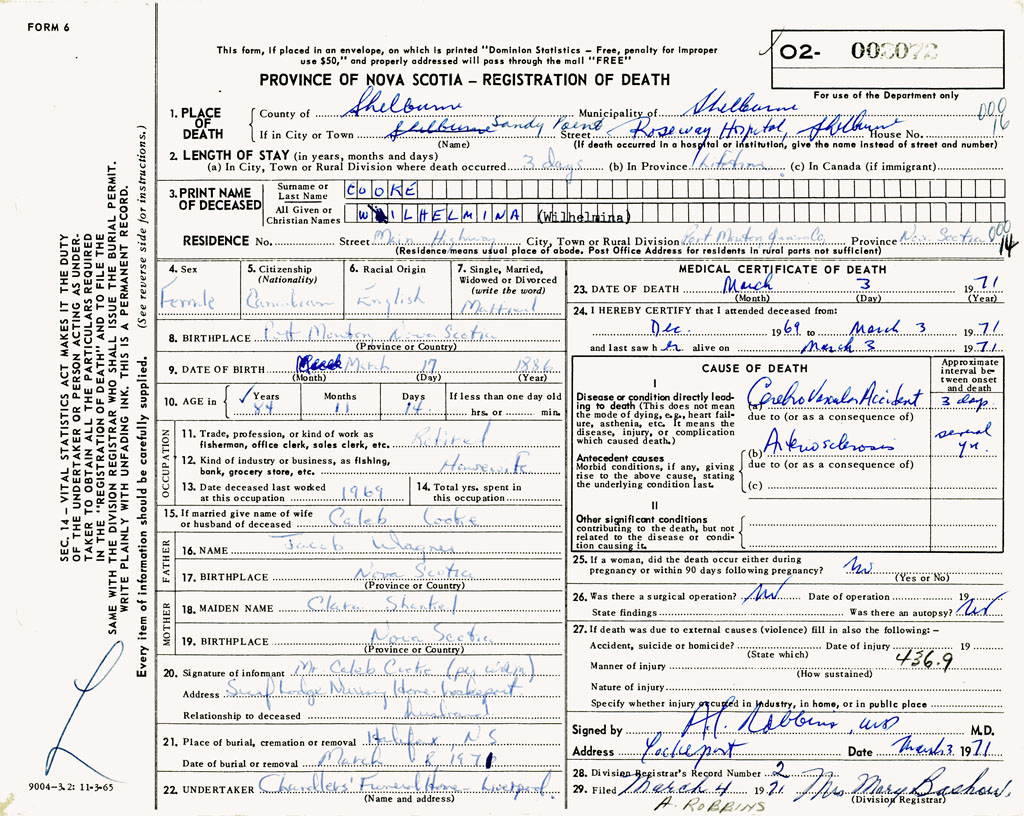 FORM 6
This form, if placed in an envelope, on which is printed "Dominion Statistics — Free, penalty for improper
use $50," and properly addressed will pass through the mail "FREE"
PROVINCE OF NOVA SCOTIA — REGISTRATION OF DEATH
02- 002072
For use of the Department only
1. PLACE OF DEATH
County of Shelburne Municipality of Shelburne
000
16
If in City or Town Shelburne Sandy Point Street Roseway Hospital, Shelburne House No.
(Name) (If death occurred in a hospital or institution, give the name instead of street and number)
2. LENGTH OF STAY (in years, months and days)
(a) In City, Town or Rural Division where death occurred 3 days (b) In Province Lifetime (c) In Canada (if immigrant)
3. PRINT NAME OF DECEASED
Surname or Last Name COOKE
All Given or Christian Names WILHELMINA (Wilhelmina)
RESIDENCE No. Street Main Highway City, Town or Rural Division Port Mouton Queens Co. Province Nova Scotia
000
14
(Residence means usual place of abode. Post Office Address for residents in rural parts not sufficient)
4. Sex
Female
5. Citizenship
(Nationality)
Canadian
6. Racial Origin
English
7. Single, Married,
Widowed or Divorced
(write the word)
Married
8. BIRTHPLACE Port Mouton, Nova Scotia
(Province or Country)
9. DATE OF BIRTH March 17 1886
(Month) (Day) (Year)
10. AGE in
Years Months Days If less than one day old
84 11 14 hrs. or min.
OCCUPATION
11. Trade, profession, or kind of work as
fisherman, office clerk, sales clerk, etc. Retired
12. Kind of industry or business, as fishing,
bank, grocery store, etc. Housewife
13. Date deceased last worked
at this occupation 1969
14. Total yrs. spent in
this occupation
15. If married give name of wife
or husband of deceased Caleb Cooke
FATHER
16. NAME Jacob Wagner
17. BIRTHPLACE Nova Scotia
(Province or Country)
MOTHER
18. MAIDEN NAME Clara Shankel
19. BIRTHPLACE Nova Scotia
(Province or Country)
20. Signature of informant Mr. Caleb Cooke
Address Surf Lodge Nursing Home Lockeport
Relationship to deceased husband
21. Place of burial, cremation or removal Halifax, N.S.
Date of burial or removal March 8, 1971
22. UNDERTAKER Chandlers' Funeral Home - Liverpool
(Name and address)
MEDICAL CERTIFICATE OF DEATH
23. DATE OF DEATH March 3 1971
(Month) (Day) (Year)
24. I HEREBY CERTIFY that I attended deceased from:
Dec. 1969 to March 3 1971
and last saw her alive on March 3 1971
CAUSE OF DEATH
Approximate
interval be-
tween onset
and death
I
Disease or condition directly lead-
ing to death (This does not mean
the mode of dying, e.g., heart failure, asthenia, etc. It means the
disease, injury, or complication
which caused death.)
(a) Cerebro Vascular Accident 3 days
due to (or as a consequence of)
Antecedent causes
Morbid conditions, if any, giving
rise to the above cause, stating
the underlying condition last.
(b) Arteriosclerosis several yr.
due to (or as a consequence of)
(c)
II
Other significant conditions
contributing to the death, but not
related to the disease or condi-
tion causing it.
25. If a woman, did the death occur either during
pregnancy or within 90 days following pregnancy? No
(Yes or No)
26. Was there a surgical operation? No Date of operation 19
State findings Was there an autopsy? No
27. If death was due to external causes (violence) fill in also the following: —
Accident, suicide or homicide? Date of injury 19
(State which) 436.9
Manner of injury
(How sustained)
Nature of injury
Specify whether injury occurred in industry, in home, or in public place
Signed by A.C. Robbins, MD M.D.
Address Lockeport Date March 3 1971
28. Division Registrar's Record Number 2
29. Filed March 4 1971 Mrs Mary
(Division Registrar)
A. ROBBINS
SEC. 14 — VITAL STATISTICS ACT MAKES IT THE DUTY
OF THE UNDERTAKER OR PERSON ACTING AS UNDER-
TAKER TO OBTAIN ALL THE PARTICULARS REQUIRED
IN THE "REGISTRATION OF DEATH" AND TO FILE THE
SAME WITH THE DIVISION REGISTRAR WHO SHALL ISSUE THE BURIAL PERMIT.
WRITE PLAINLY WITH UNFADING INK. THIS IS A PERMANENT RECORD.
Every item of information should be carefully supplied. (See reverse side for instructions.)
9004-3.2: 11-3-65